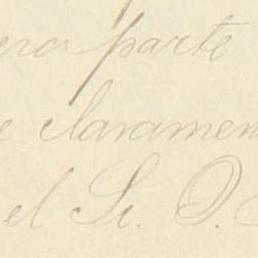 era parte
e claramen
el Sr. D.